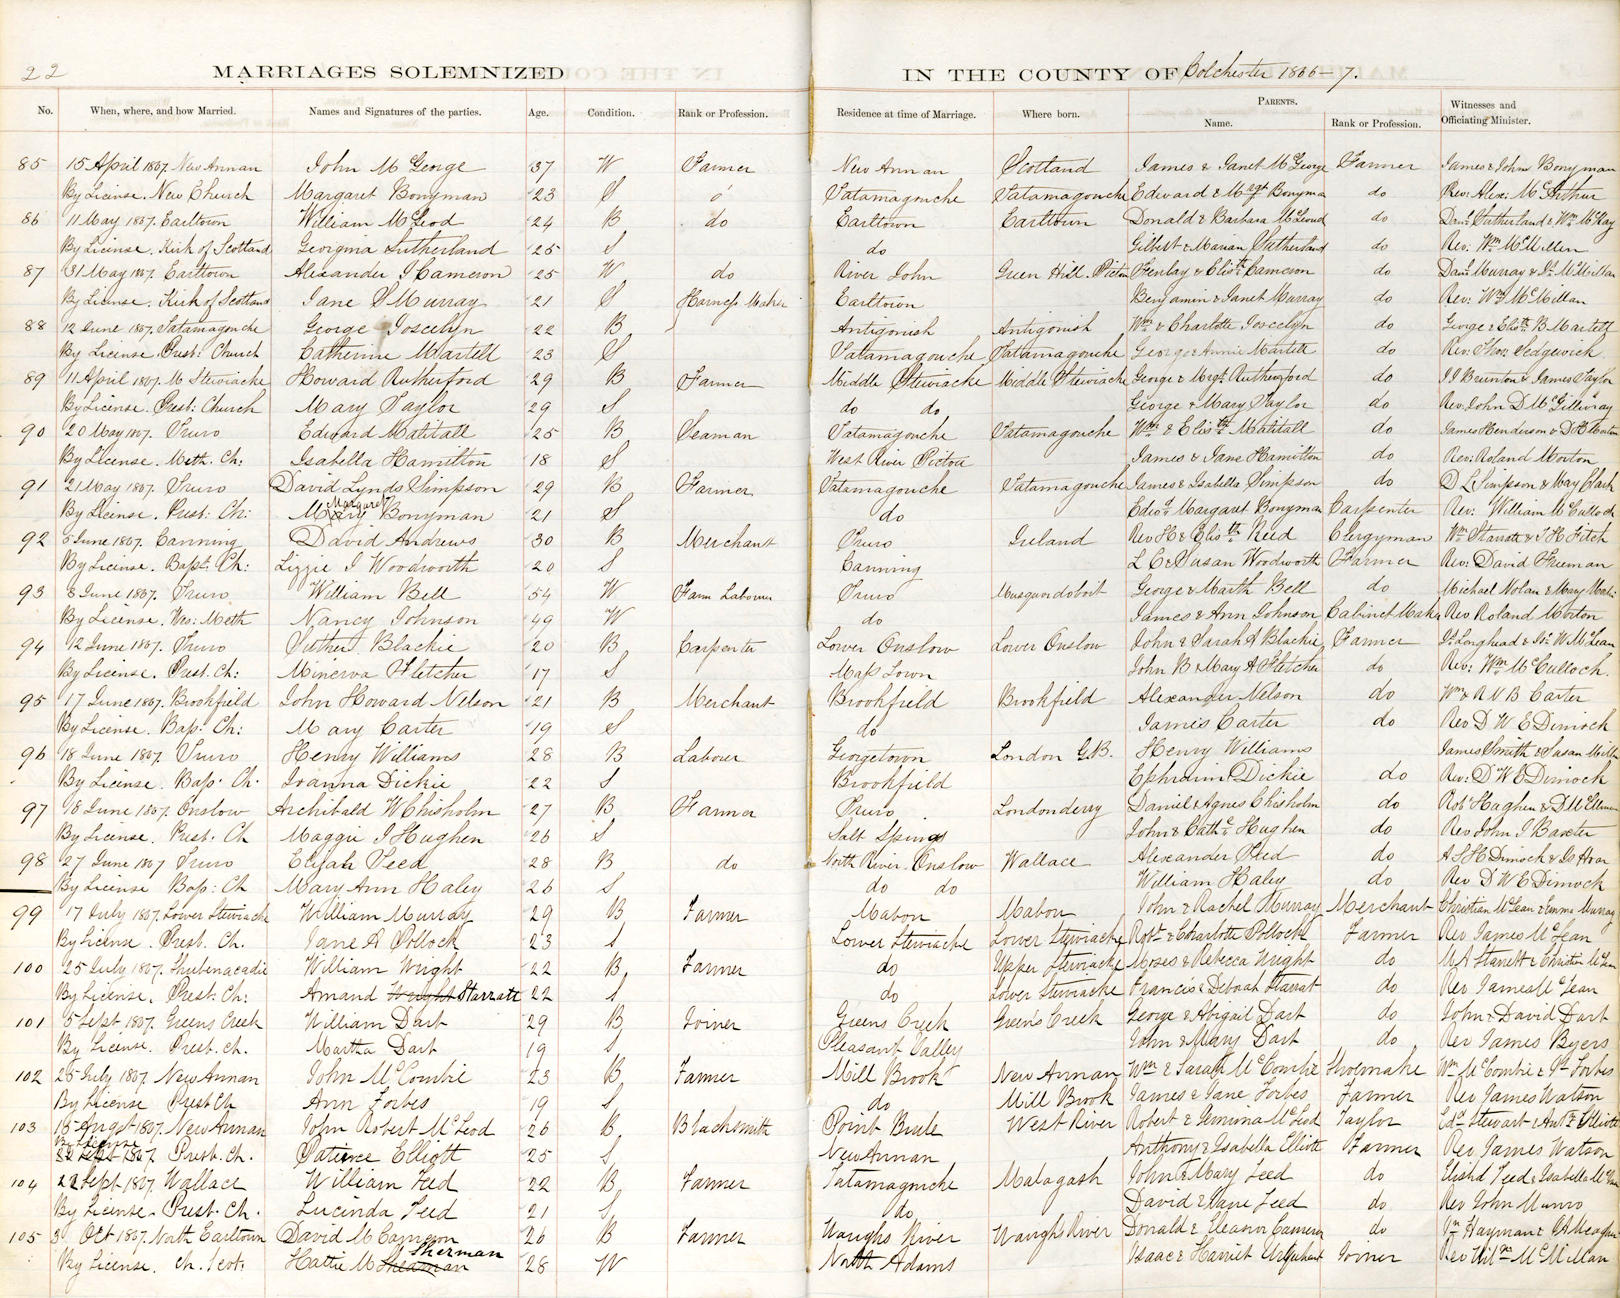 22
MARRIAGES SOLEMNIZED IN THE COUNTY OF Colchester 1866-7.
No. When, where, and how Married. Names and Signatures of the parties. Age. Condition. Rank or Profession. Residence at time of Marriage. Where born. PARENTS. Name. Rank or Profession. Witnesses and Officiating Minister.
85 15 April 1867 New Annan John McGeorge 37 W Farmer New Annan Scotland James & Janet McGeorge Farmer James & John Bonyman
By License. New Church Margaret Bonyman 23 S Tatamagouche Tatamagouche Edward & Margt Bonyman do Rev: Alex: McArthur
86 11 May 1867. Earltown William McLeod 24 B do Earltown Earltown Donald & Barbara McLeoud do Danl Sutherland & Wm McKay
By License. Kirk of Scotland Georgina Sutherland 25 S do Gilbert & Marian Sutherland do Rev. Wm McMillen
87 31 May 1867. Earltown Alexander Cameron 25 W do River John Green Hill. Pictou Finlay & Elisth Cameron do Danl Murray & McMillan
By License. Kirk of Scotland Jane S Murray 21 S Harness Maker Earltown Benjamin & Janet Murray do Rev: Wm McMillan
88 12 June 1867. Tatamagouche George Joscelyn 22 B Antigonish Antigonish Wm & Charlotte Joscelyn do George & Elisth B Martell
By License Prest: Church Catherine Martell 23 S Tatamagouche Tatamagouche George & Annie Martell do Rev: Thos Sedgewick
89 11 April 1867. M Stewiacke Howard Rutherford 29 B Farmer Middle Stewiacke Middle Stewiacke George & Margt Rutherford do J J Brunton & James Taylor
By License. Prest: Church Mary Taylor 29 S do do George & Mary Taylor do Rev. John D McGillivray
90 20 May 1867. Truro Edward Matitall 25 B Seaman Tatamagouche Tatamagouche Wm & Elisth Matitall do James Henderson & D H Morton
By License. Meth. Ch: Isabella Hamilton 18 S West River Pictou James & Jane Hamilton do Rev: Roland Morton
91 21 May 1867. Truro David Lynds Simpson 29 B Farmer Tatamagouche Tatamagouche James & Isabella Simpson do D L Simpson & May Clark
By License. Prest: Ch: Mary Margaret Bonyman 21 S do Edwd & Margaret Bonyman Carpenter Rev: William McCulloch
92 6 June 1867. Canning David Andrews 30 B Merchant Truro Ireland Rev H & Elisth Reid Clergyman Wm Starratt & J H Fitch
By License. Bapt: Ch: Lizzie J Woodworth 20 S Canning L C & Susan Woodworth Farmer Rev: David Freeman
93 8 June 1867. Truro William Bell 54 W Farm Labourer Truro Musquodoboit George & Marth Bell do Michael Nolan & Mary
By License. Wes: Meth Nancy Johnson 49 W do James & Ann Johnson Cabinet Maker Rev Roland Morton
94 12 June 1867. Truro Luther Blackie 20 B Carpenter Lower Onslow Lower Onslow John & Sarah A Blackie Farmer Js. Longhead & Js. W McLean
By License. Prest. Ch: Minerva Fletcher 17 S Mass Town John B & Mary A Fletcher do Rev: Wm McCulloch
95 17 June 1867. Brookfield John Howard Nelson 21 B Merchant Brookfield Brookfield Alexander Nelson do Wm & R N B Carter
By License. Bap: Ch: Mary Carter 19 S do James Carter do Rev D W E Dimock
96 18 June 1867. Truro Henry Williams 28 B Labourer Georgetown London G.B. Henry Williams James Smith & Susan Miller
By License. Bap: Ch. Joanna Dickie 22 S Brookfield Ephraim Dickie do Rev: D W E Dimock
97 18 June 1867. Onslow Archibald W Chisholm 27 B Farmer Truro Londonderry Daniel & Agnes Chisholm do Robt Hughen &
By License. Prest. Ch Maggie J Hughen 26 S Salt Springs John & Cathe Hughen do Rev John I Baxter
98 27 June 1867 Truro Elijah Teed 28 B do North River. Onslow Wallace Alexander Teed do A S H Dimock & Js Hoar
By License Bap: Ch Mary Ann Haley 26 S do do William Haley do Rev D W E Dimock
99 17 July 1867. Lower Stewiacke William Murray 29 B Farmer Mabou Mabou John & Rachel Murray Merchant Christian McLean & Emma Murray
By License. Prest. Ch. Jane A Pollock 23 S Lower Stewiacke Lower Stewiacke Robt & Charlotte Pollock Farmer Rev James McLean
100 25 July 1867. Shubenacadie William Wright 22 B Farmer do Upper Stewiacke Moses & Rebecca Wright do Starratt & Christin McLean
By License. Prest: Ch: Amand Wright Starratt 22 S do Lower Stewiacke Francis & Deborah Starrat do Rev James McLean
101 5 Sept 1867. Greens Creek William Dart 29 B Joiner Greens Creek Greens Creek George & Abigail Dart do John & David Dart
By License. Prest. Ch. Martha Dart 19 S Pleasant Valley John & Mary Dart do Rev James Byers
102 25 July 1867. New Annan John McCombie 23 B Farmer Mill Brook New Annan Wm & Sarah McCombie Shoemake Wm McCombie & Forbes
By License Prest Ch Ann Forbes 19 S do Mill Brook James & Jane Forbes Farmer Rev James Watson
103 15 Augst 1867. New Annan John Robert McLeod 26 B Blacksmith Point Brule West River Robert & Jemima McLeod Taylor Edd Stewart & Elliott
By License Prest. Ch. Patience Elliott 25 S New Annan Anthony & Isabella Elliott Farmer Rev James Watson
104 22 Sept 1867. Wallace William Teed 22 B Farmer Tatamagouche Malagash John & Mary Teed do Elisha Teed & Isabella
By License. Prest. Ch. Lucinda Teed 21 S do David & Jane Teed do Rev John Munro
105 3 Oct 1867. North Earltown David M Cameron 26 B Farmer Waughs River Waughs River Donald & Eleanor Cameron do Hayman &
By License. Ch. Scot: Hattie M Shearman Sherman 28 W North Adams Isaac & Harriet Urquhart Joiner Rev McMillan